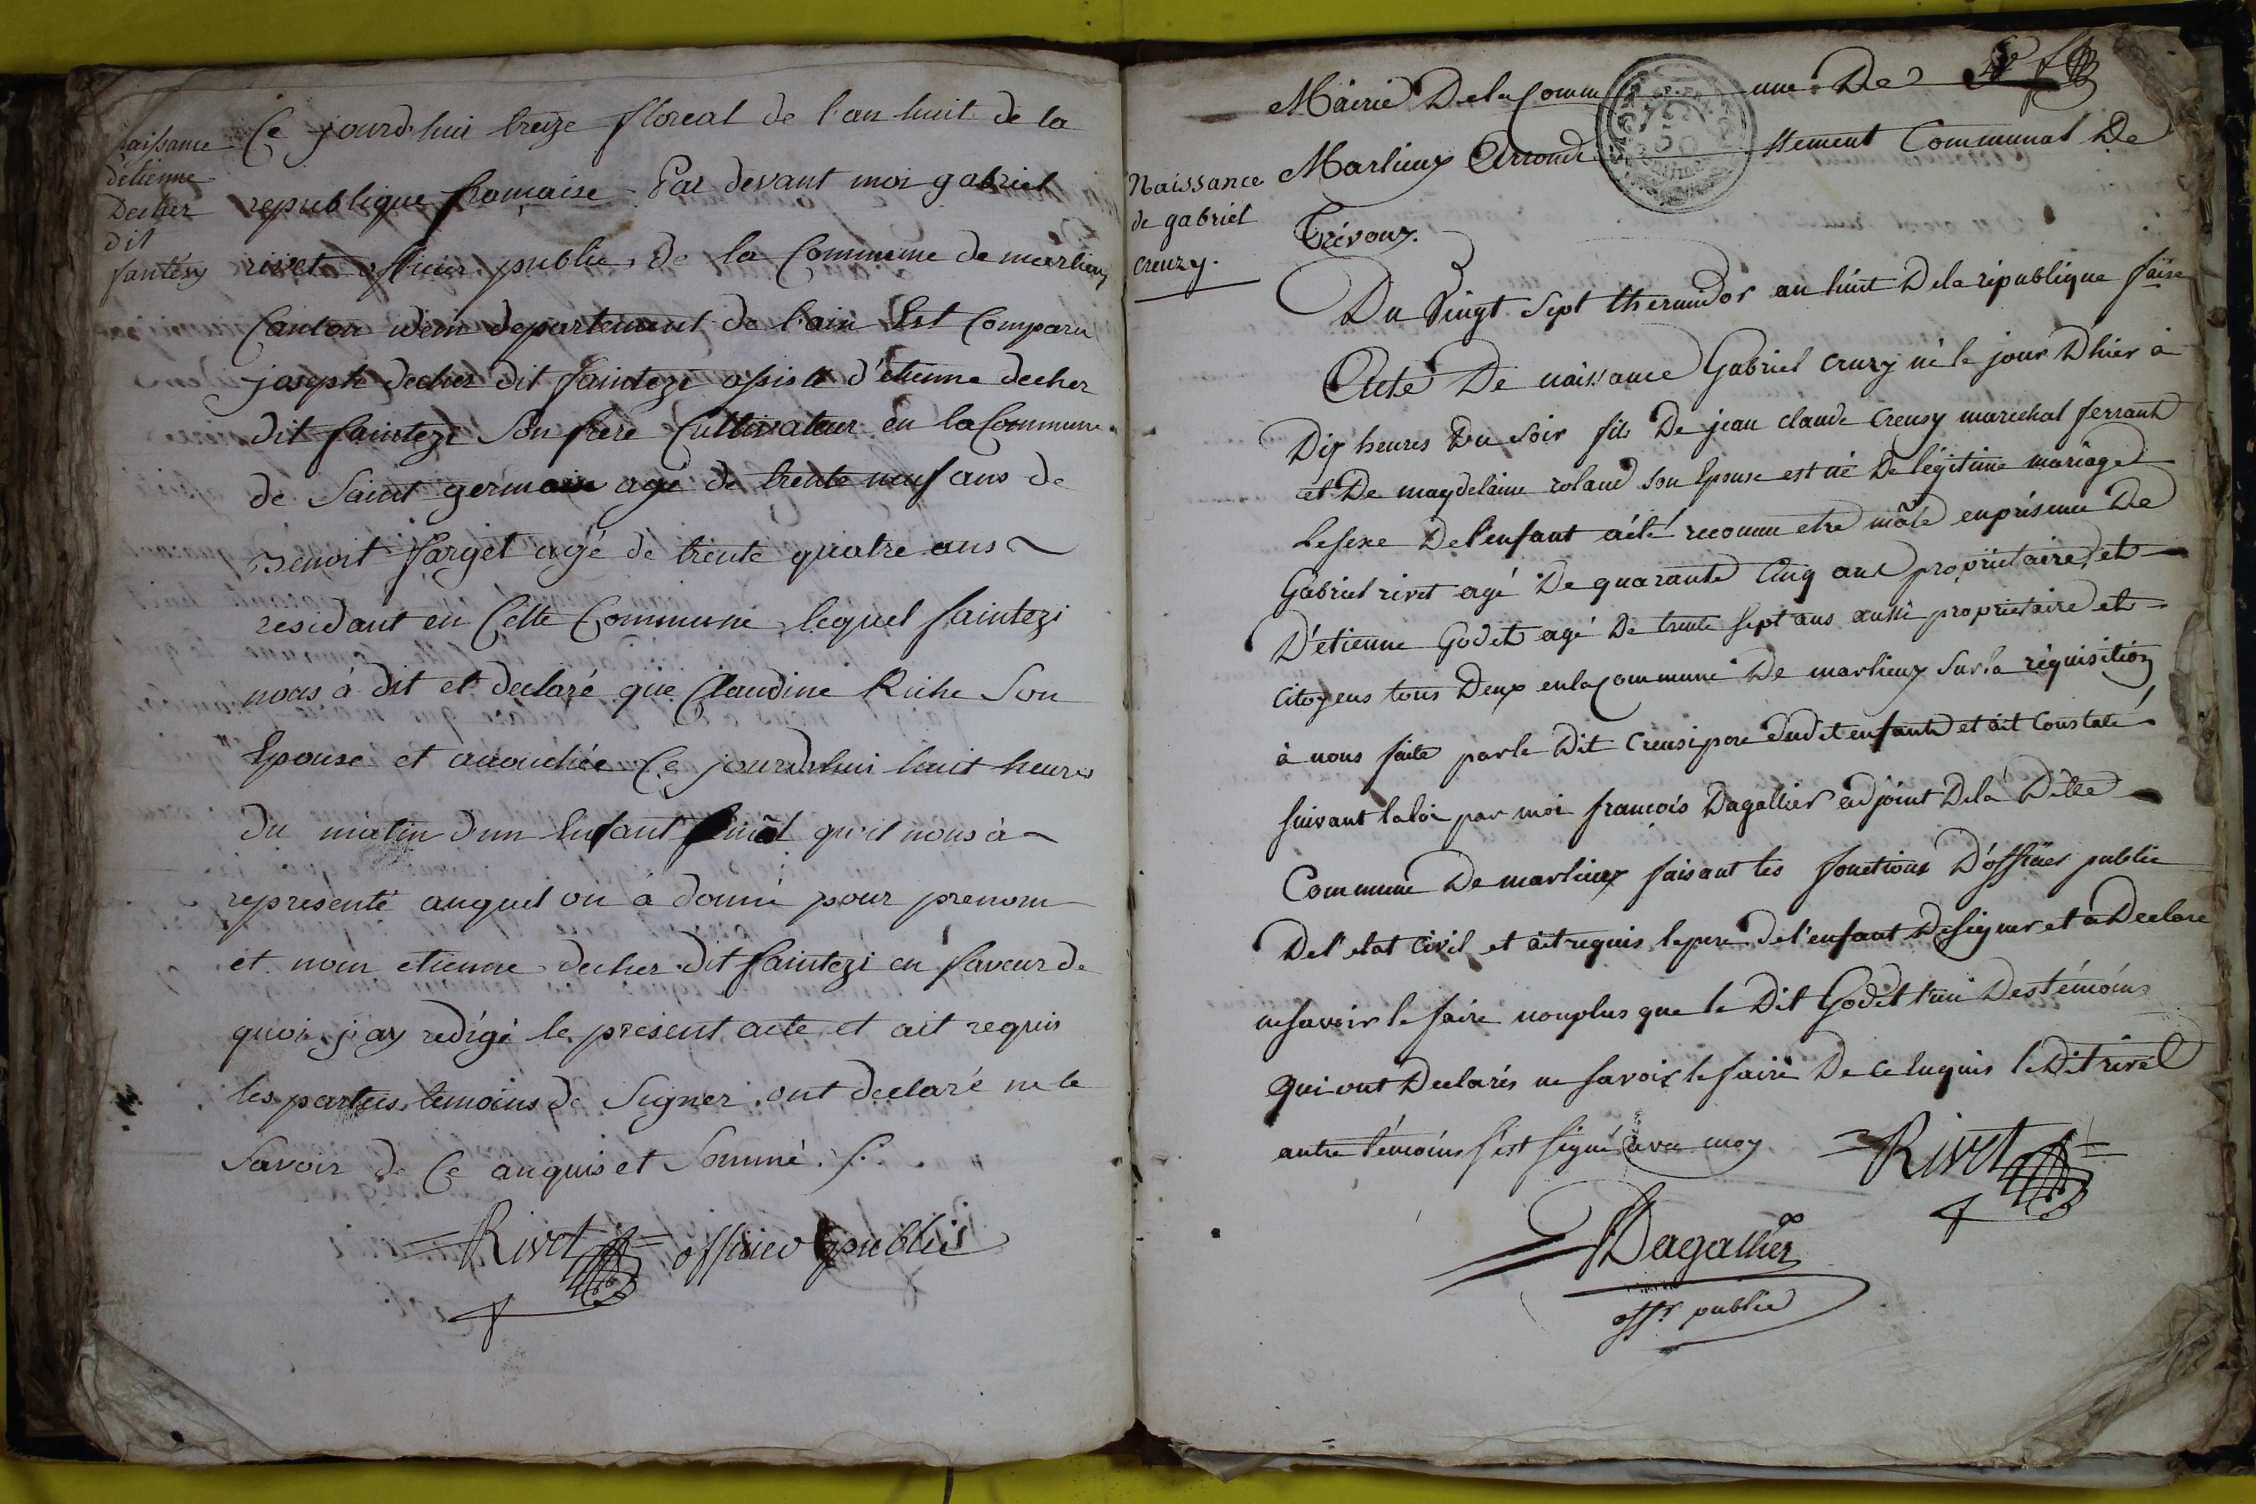 naissance
d'etienne
decher
dit
saintezy
Ce jourd'hui treize floreal de l'an huit de la
republique francaise Par devant moi gabriel
rivet officier public, de la Commune de marlieux
Canton idem departement de l'ain Est Comparu
joseph decher dit saintezi assisté d'étienne decher
dit saintezi Son frere Cultivateur en la Commune
de Saint germain agé de trente neuf ans de
Benoit farget agé de trente quatre ans
residant en Cette Commune lequel saintezi
nous à dit et declaré que Claudine Riche Son
Epouse et accouchée Ce jourdhui huit heures
du matin d'un Enfant mâl qu'il nous à
representé auquel on à donné pour prenom
et nom etienne decher dit saintezi en faveur de
quoi j'ay redigé le present acte et ait requis
les parties, temoins de Signer ont declaré ne le
Savoir de Ce auquis et Sommé.
Rivet officier public
Mairie De la Commune De
Marlieux Arrondissement Communal De
Trévoux.
Naissance
de gabriel
creuzy.
Du Vingt Sept thermidor an huit De la république faise
Acte De naissance Gabriel cruzy né le jour D'hier à
Dix heures Du Soir fils De jean claude Creusy marechal ferrant
et De magdelaine roland Son Epouse est né De légitime mariage
Le sexe De l'enfant à été reconnu etre mâle en présence De
Gabriel rivet agé De quarante Cinq ans propriétaire, et
D'etienne Godet agé De trente Sept ans aussi propriétaire et
Citoyens tous Deux en la Commune De marlieux Sur la réquisition
à nous faite par le Dit Creusi pere dudit enfant et ait Constaté
Suivant la loi par moi francois Dagallier adjoint De la Ditte
Commune De marlieux faisant les fonctions D'officier public
De l'etat Civil et ait requis le pere de l'enfant De signer et à Declare
ne savoir le faire non plus que le Dit Godet l'un Des témoins
qui ont Declarés ne savoir le faire De ce Enquis le Dit rivet
autre témoins s'est signé avec moy
Rivet
Dagallier
offr public